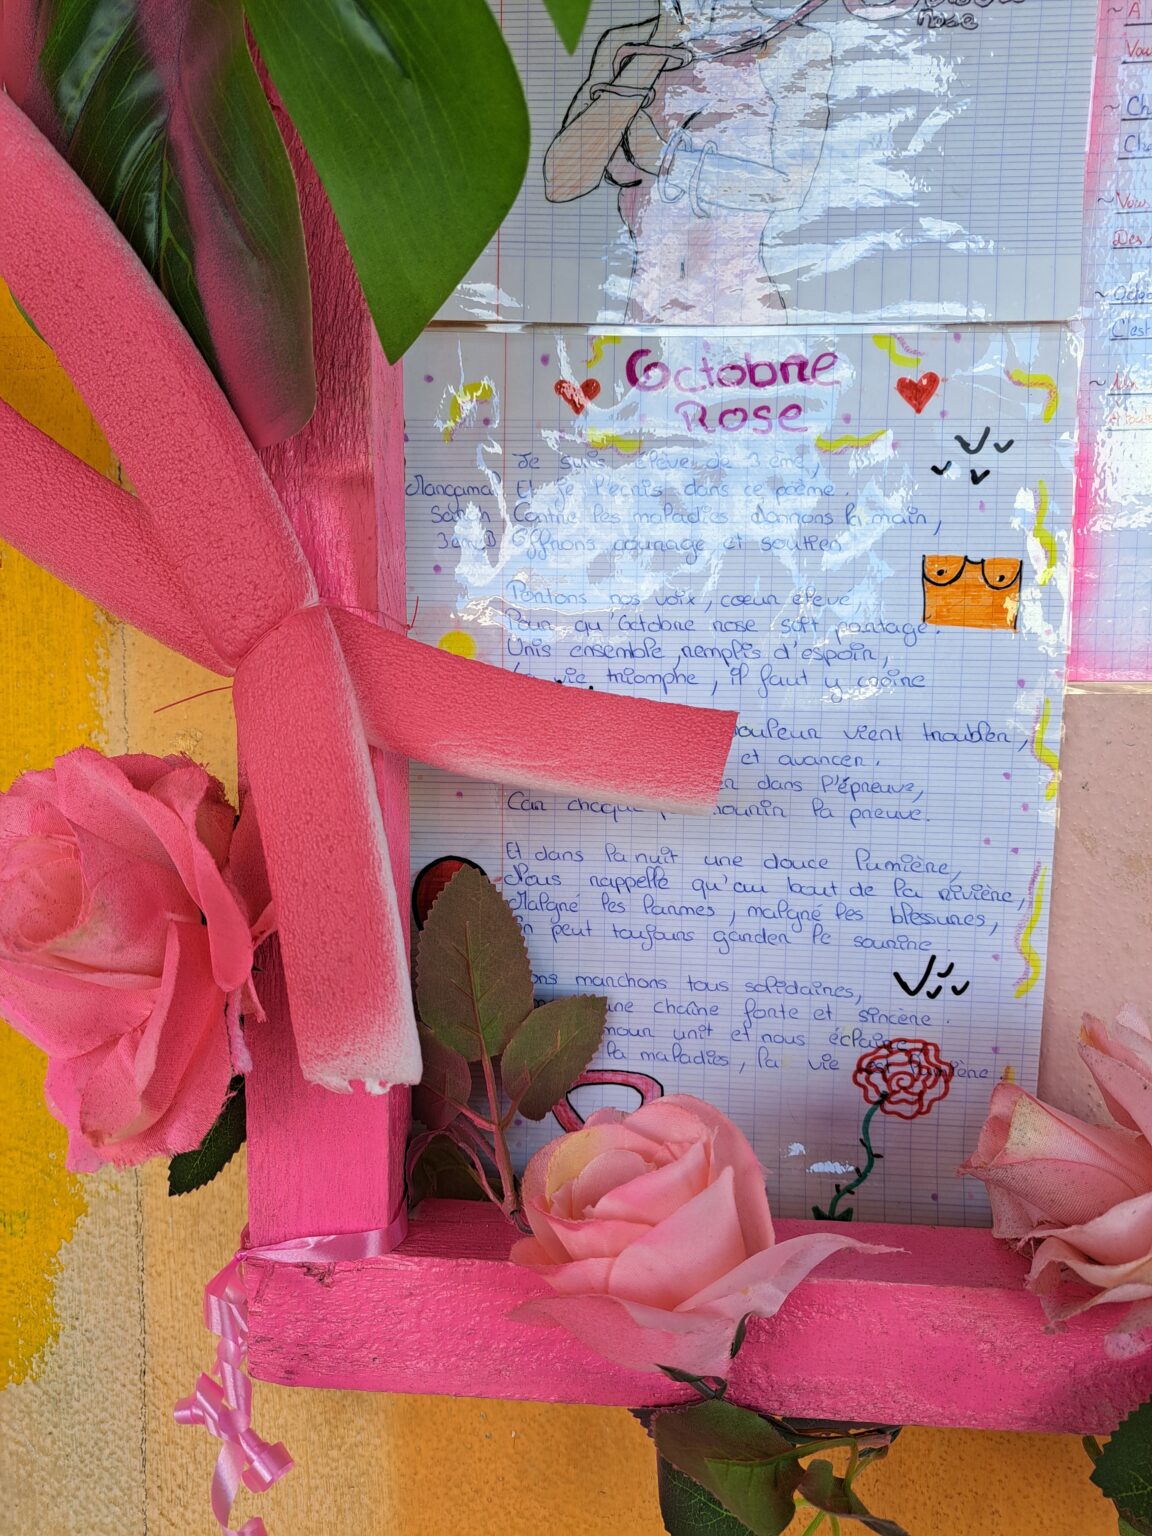 Rose
Octobre
Rose
Je suis élève de 3ème,
Et je l'écris dans ce poème.
Contre les maladies donnons la main,
Offrons courage et soutien
Mangama
3emeB
Portons nos voix, coeur élevé,
Pour qu'Octobre rose soit partagé.
Unis ensemble, remplis d'espoir,
vie triomphe, il faut y croire
ouleur vient troubler,
et avancer.
r dans l'épreuve,
Car chaque nourir la preuve.
Et dans la nuit une douce lumière,
Nous rappelle qu'au bout de la rivière,
Malgré les larmes, malgré les blessures,
n peut toujours garder le sourire.
ons marchons tous solidaires,
une chaîne forte et sincère.
mour unit et nous éclaire
la maladies, la vie est lumière.
~ A
Vou
~ Ch
Che
~ Vous
Des
C'est